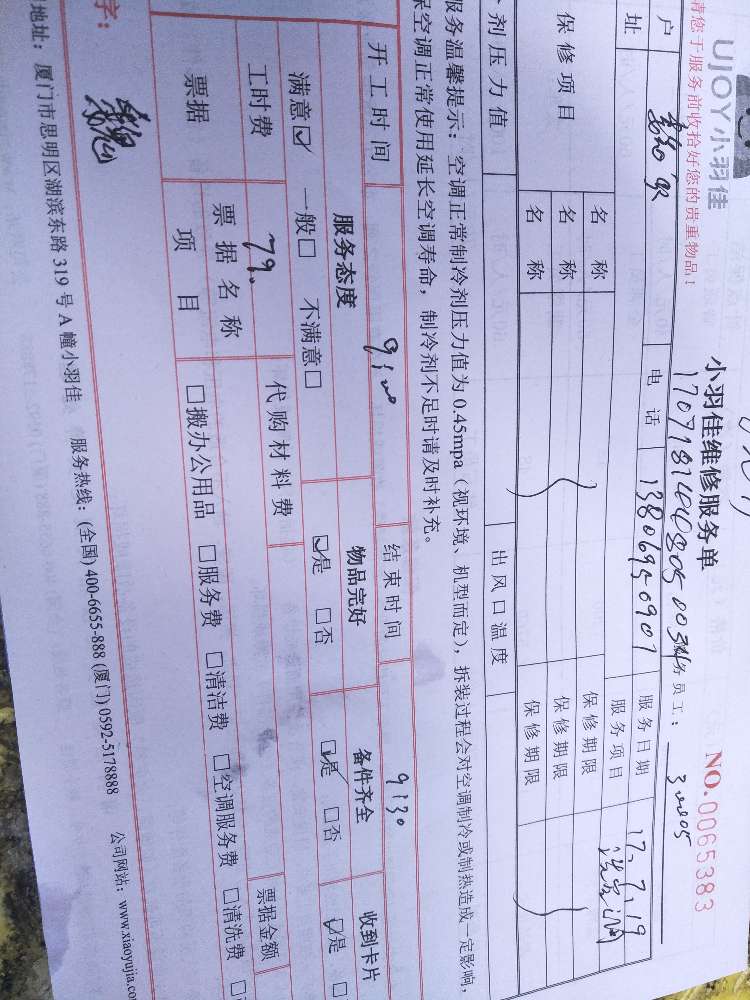 UJOY小羽佳
小羽佳维修服务单
NO.0065383
请您于服务前收拾好您的贵重物品!
务员工: 30005
户
电 话 13806950907
服务日期 17.7.19
址
服务项目
保 修 项 目
名 称
保修期限
名 称
保修期限
名 称
保修期限
剂压力值
出风口温度
服务温馨提示: 空调正常制冷剂压力值为 0.45mpa (视环境、机型而定), 拆装过程会对空调制冷或制热造成一定影响,
保空调正常使用延长空调寿命, 制冷剂不足时请及时补充。
开 工 时 间 9:00
结 束 时 间 9:30
服务态度
物品完好
备件齐全
收到卡片
满意☑ 一般□ 不满意□
☑是 □否
☑是 □否
☑是 □
工时费 79.
代购材料费
票据
票 据 名 称
票据金额
项 目
□搬办公用品 □服务费 □清洁费 □空调服务费 □清洗费 □
字:
地址: 厦门市思明区湖滨东路 319 号 A 幢小羽佳 服务热线: (全国) 400-6655-888 (厦门) 0592-5178888 公司网站: www.xiaoyujia.co